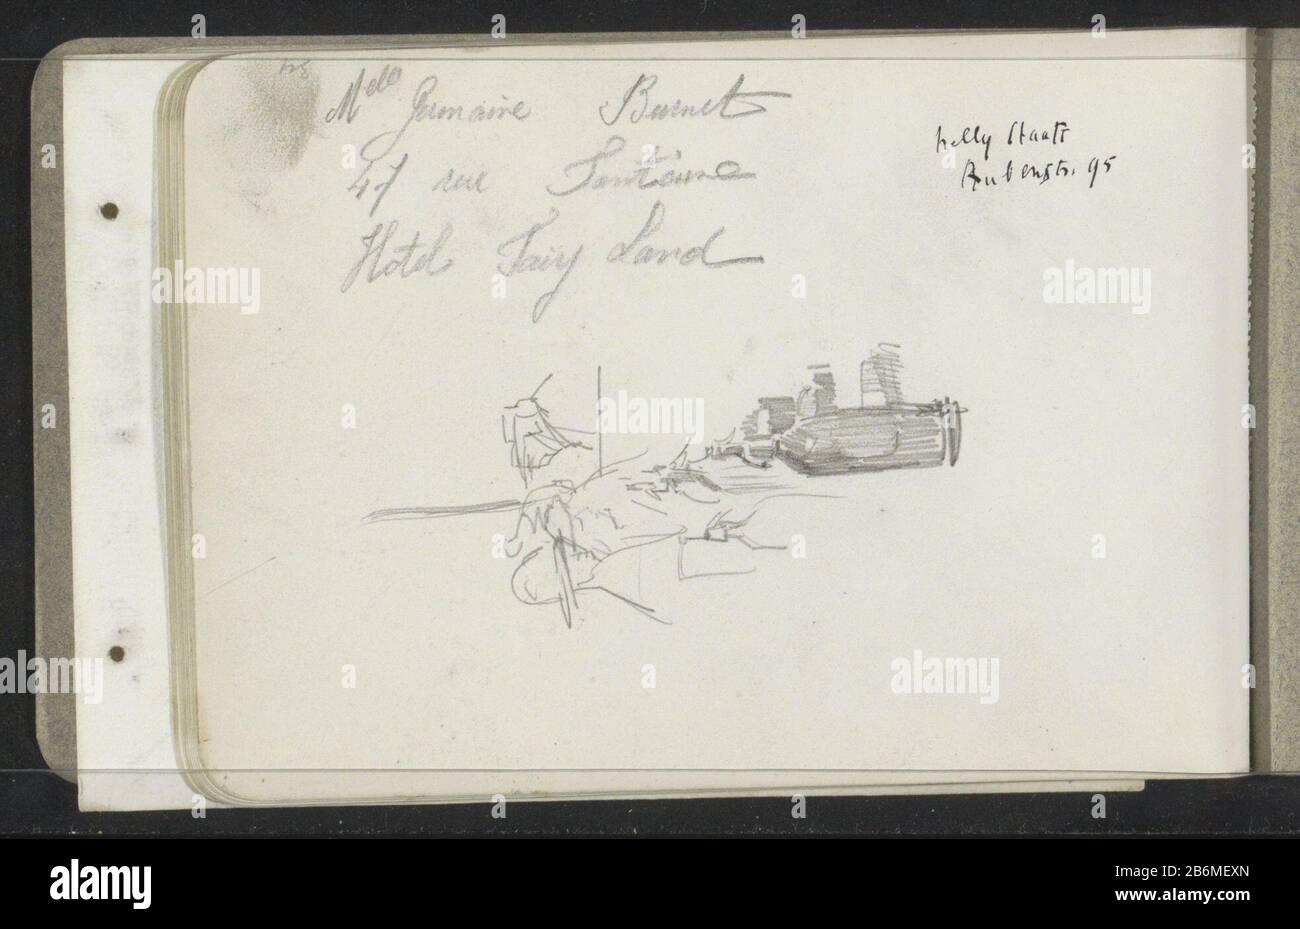 Melle Germaine Burnet
47 rue Fontaine
Hotel Fairy Land
Nelly Staats
Rubenstr. 95
alamy
Image ID: 2B6MEXN
www.alamy.com